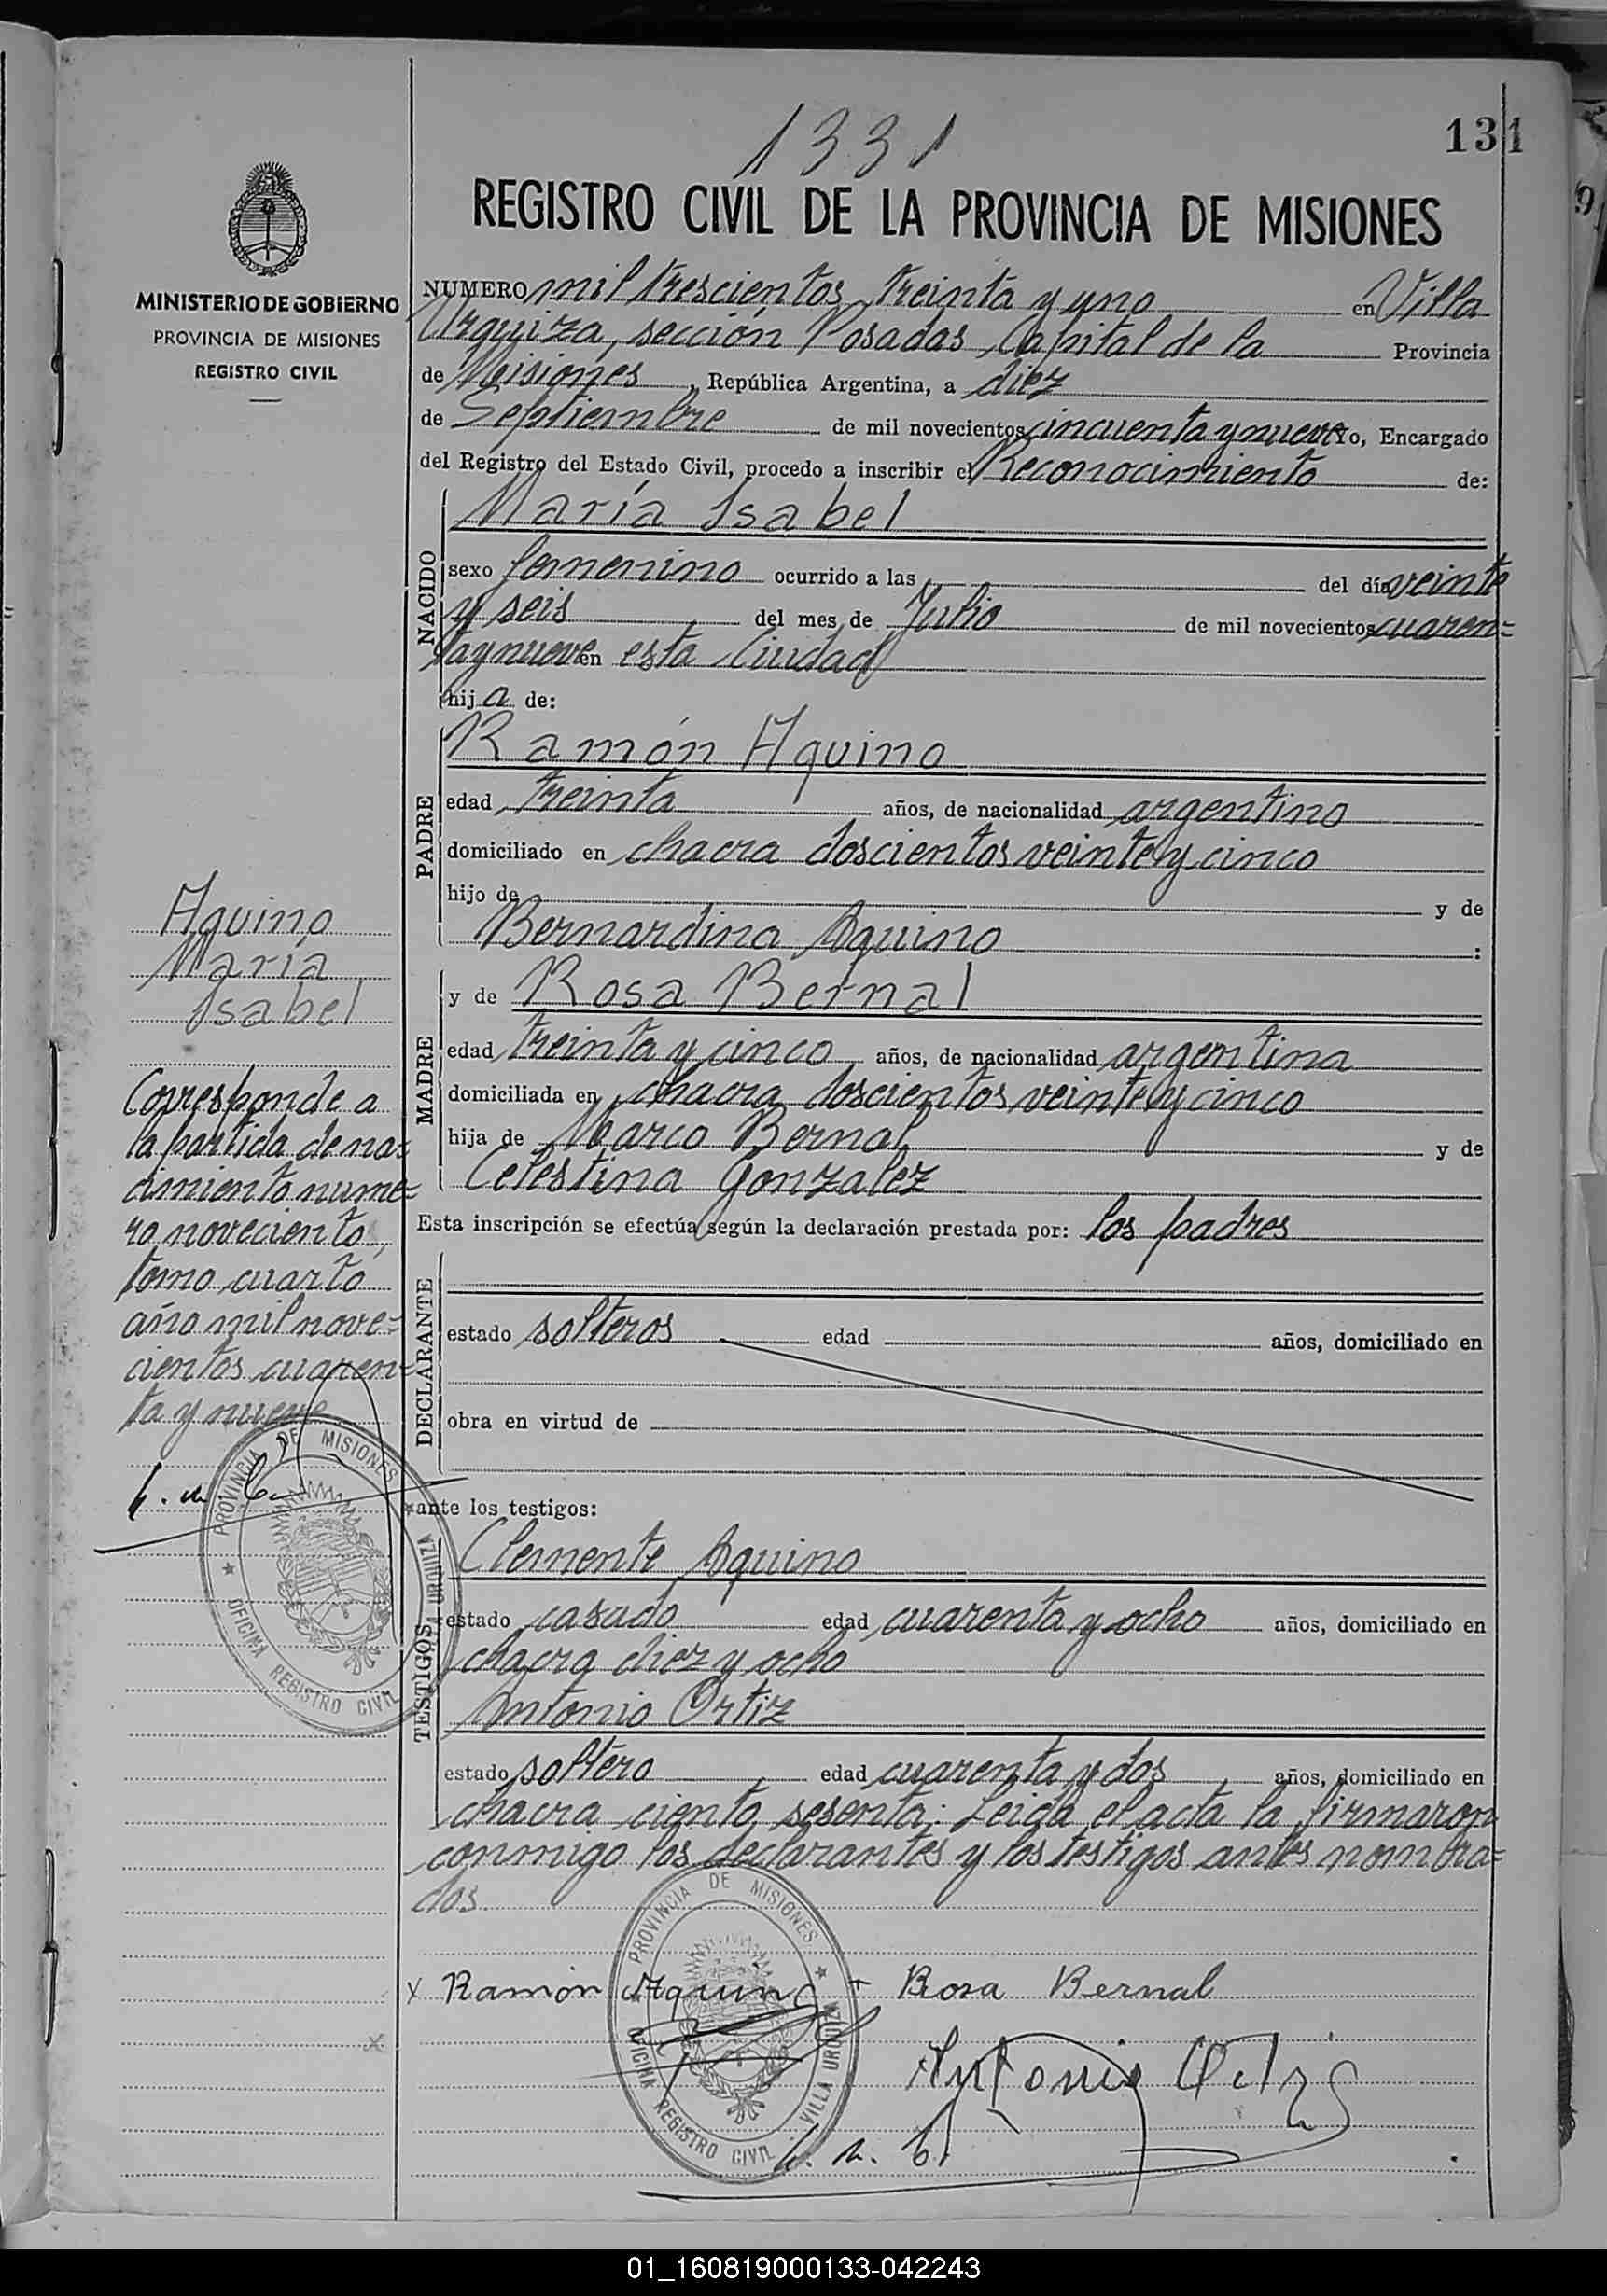 131
1331
REGISTRO CIVIL DE LA PROVINCIA DE MISIONES
MINISTERIO DE GOBIERNO
PROVINCIA DE MISIONES
REGISTRO CIVIL
NUMERO mil trescientos treinta y uno en Villa
Urquiza, sección Posadas Capital de la Provincia
de Misiones, República Argentina, a diez
de Septiembre de mil novecientos cincuenta y nueve Yo, Encargado
del Registro del Estado Civil, procedo a inscribir el Reconocimiento de:
NACIDO
María Isabel
sexo femenino ocurrido a las del día veinte
y seis del mes de Julio de mil novecientos cuaren=
ta y nueve en esta Ciudad
hija de:
PADRE
Ramón Aquino
edad treinta años, de nacionalidad argentino
domiciliado en chacra doscientos veinte y cinco
hijo de y de
Bernardina Aquino :
MADRE
y de Rosa Bernal
edad treinta y cinco años, de nacionalidad argentina
domiciliada en chacra doscientos veinte y cinco
hija de Marco Bernal y de
Celestina Gonzalez
Esta inscripción se efectúa según la declaración prestada por: los padres
DECLARANTE
estado solteros edad años, domiciliado en
obra en virtud de
ante los testigos:
TESTIGOS
Clemente Aquino
estado casado edad cuarenta y ocho años, domiciliado en
chacra diez y ocho
Antonio Ortiz
estado soltero edad cuarenta y dos años, domiciliado en
chacra ciento sesenta: Leída el acta la firmaron
conmigo los declarantes y los testigos antes nombra=
dos
x Ramón Aquino + Rosa Bernal
Antonio Ortiz
PROVINCIA DE MISIONES
OFICINA REGISTRO CIVIL VILLA URQUIZA
Aquino
María
Isabel
Corresponde a
la partida de na=
cimiento nume=
ro noveciento,
tomo cuarto
año mil nove=
cientos cuaren=
ta y nueve
PROVINCIA DE MISIONES
OFICINA REGISTRO CIVIL VILLA URQUIZA
01_160819000133-042243